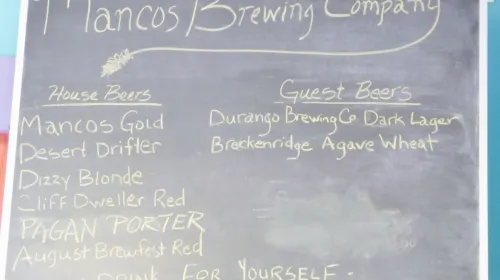 Mancos Brewing Company
House Beers
Mancos Gold
Desert Drifter
Dizzy Blonde
Cliff Dweller Red
PAGAN PORTER
August Brewfest Red
Guest Beers
Durango Brewing Co Dark Lager
Breckenridge Agave Wheat
DRINK FOR YOURSELF.